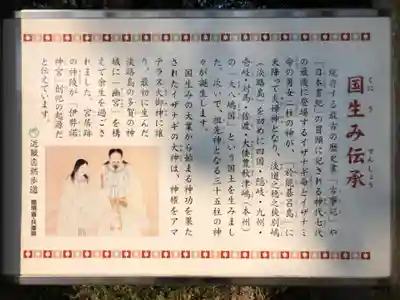 国生み伝承
くにう でんしょう
現存する最古の歴史書「古事記」や
「日本書紀」の冒頭に記される神代七代
の最後に登場するイザナギ命とイザナミ
命の男女二柱の神が、「於能碁呂島」に
天降って夫婦となり、淡道之穂之狭別嶋
(淡路島)を初めに四国・隠岐・九州・
壱岐・対馬・佐渡・大倭豊秋津嶋(本州)
の「大八嶋国」という国土を生みまし
た。次いで、祖先神となる三十五柱の神
々が誕生します。
国生みの大業から始まる神功を果た
されたイザナギの大神は、神権をアマ
テラス大御神に譲
り、最初に生んだ
淡路島の多賀の神
域に「幽宮」を構
えて余生を過ごさ
れました。宮居跡
の神陵が「伊弉諾
神宮」創祀の起源だ
と伝えています。
近畿自然歩道
環境省・兵庫県